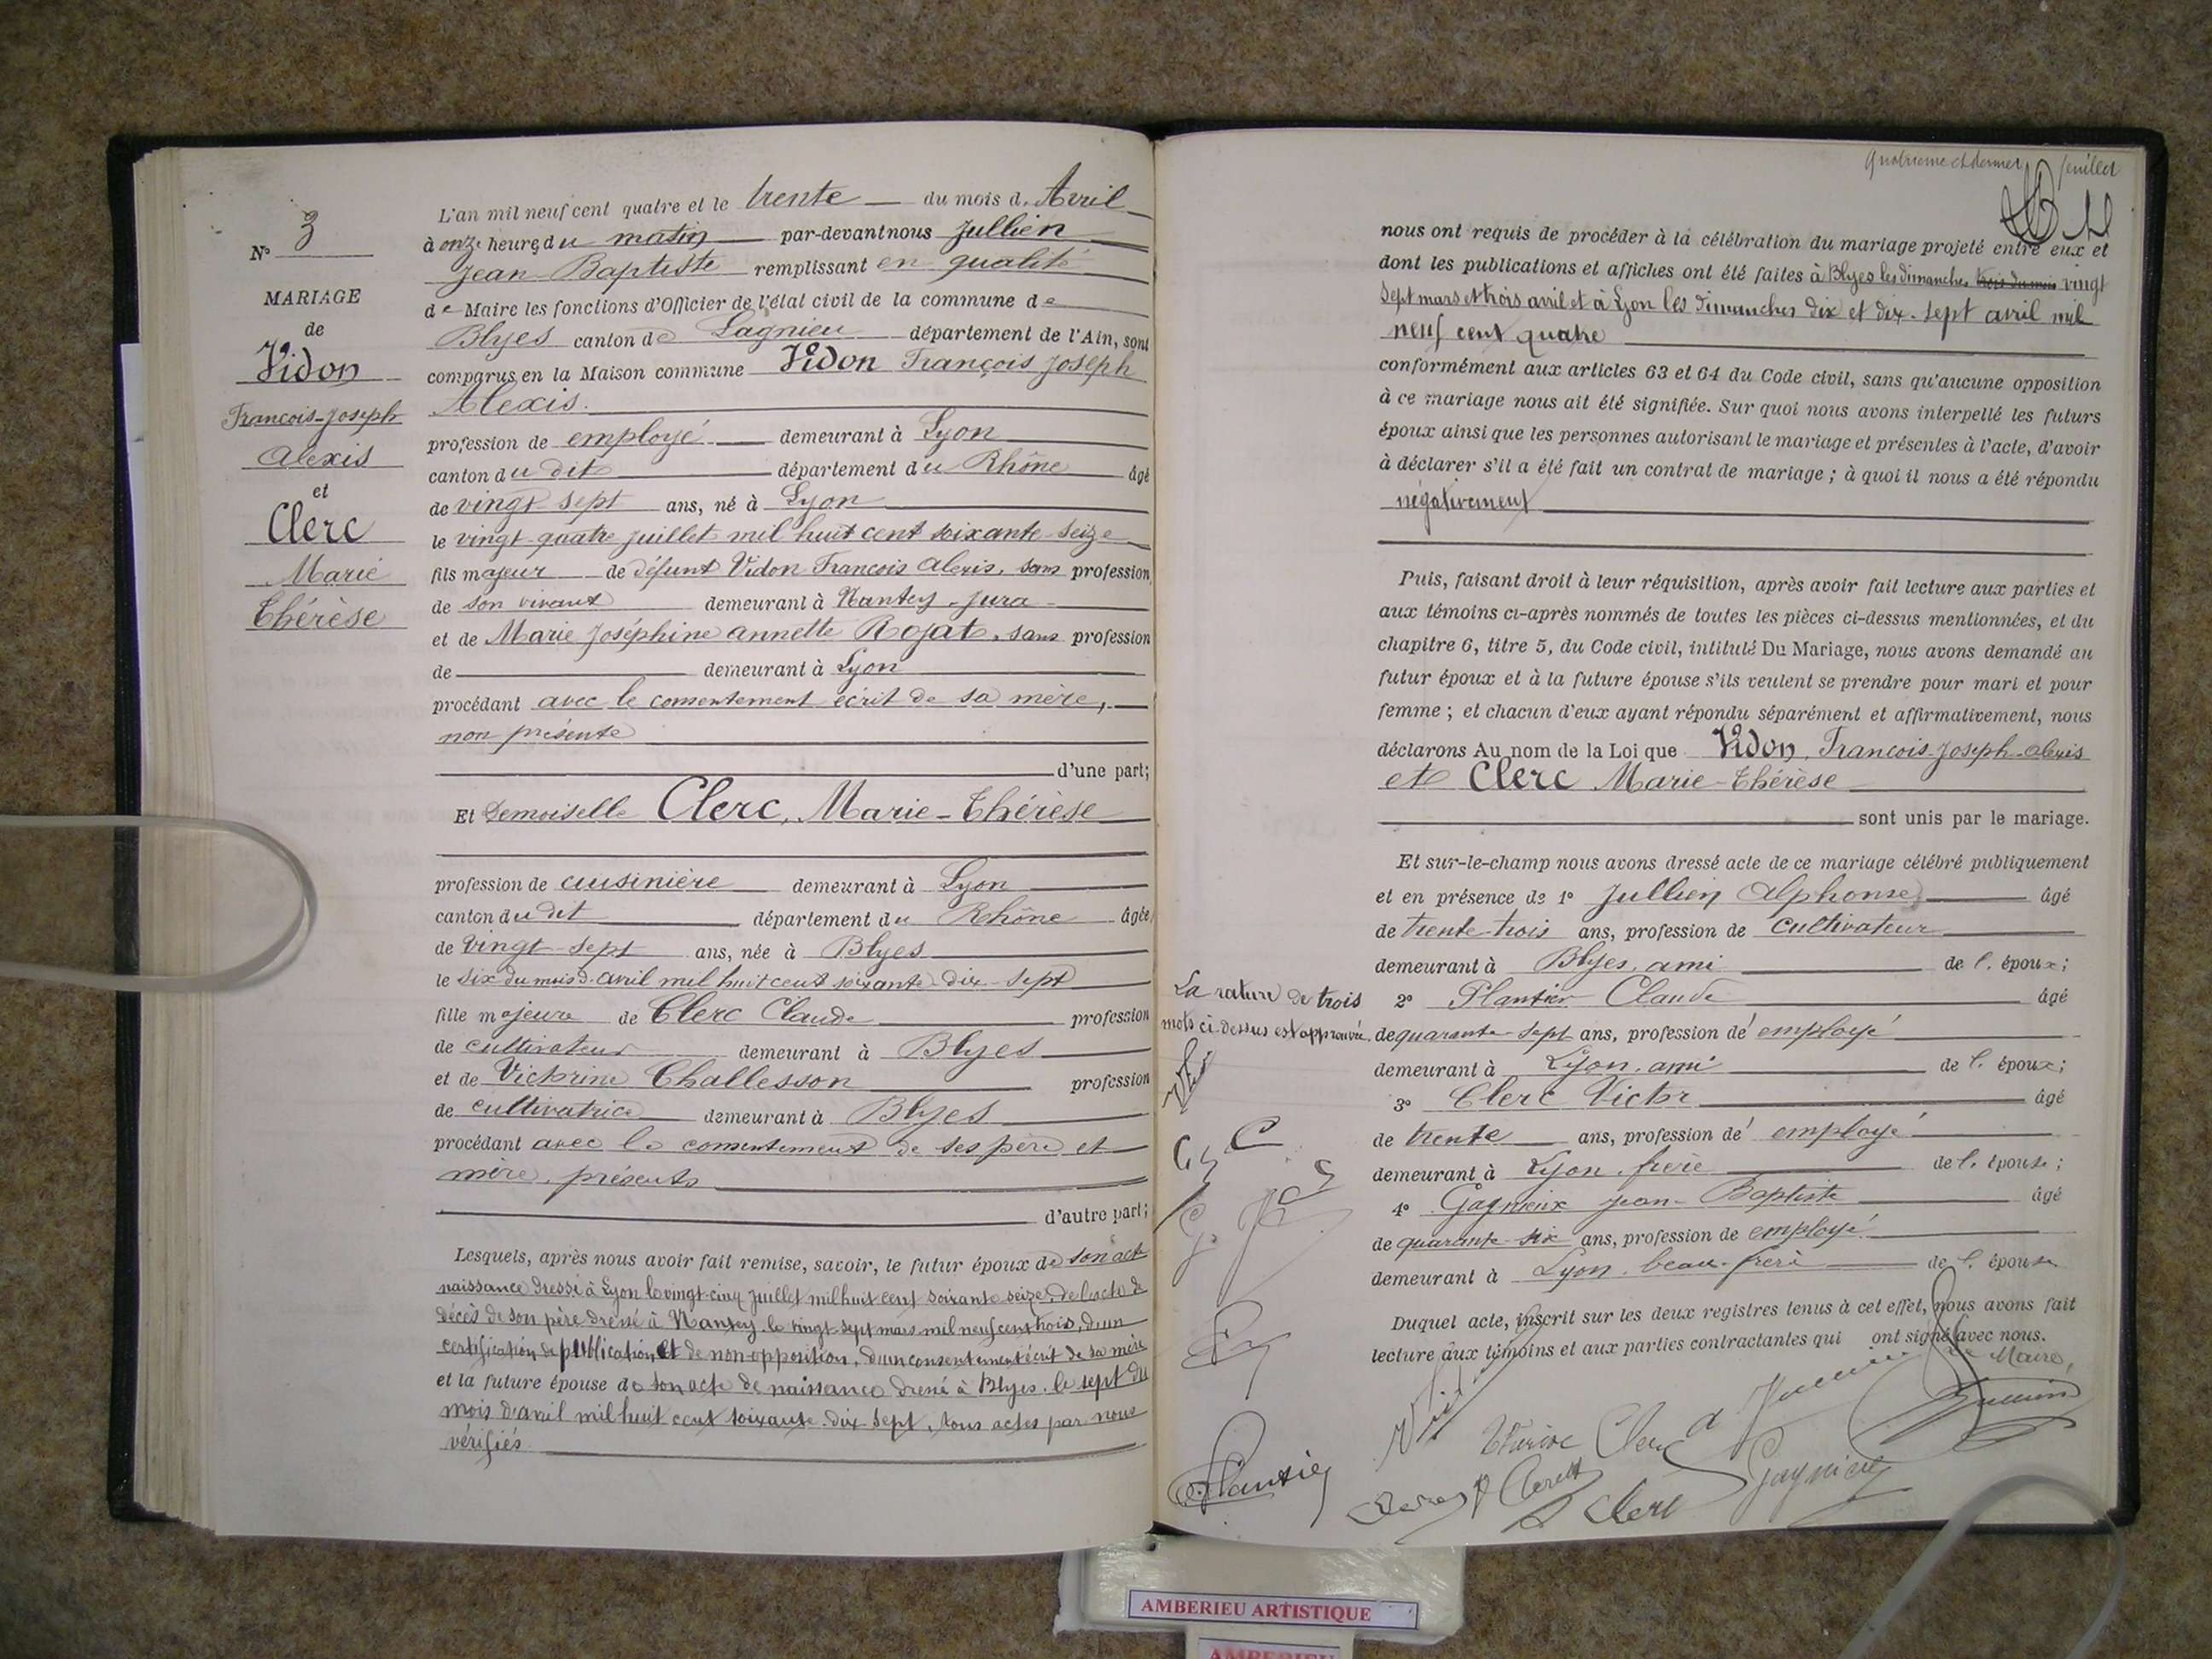 N° 3
MARIAGE
de
Vidon
François-Joseph
Alexis
et
Clerc
Marie
Thérèse
L'an mil neuf cent quatre et le trente du mois d'Avril
à onze heures du matin par-devant nous Jullien
Jean-Baptiste remplissant en qualité
de Maire les fonctions d'Officier de l'état civil de la commune de
Blyes canton de Lagnieu département de l'Ain, sont
comparus en la Maison commune Vidon François Joseph
Alexis.
profession de employé demeurant à Lyon
canton du dit département du Rhône âgé
de vingt-sept ans, né à Lyon
le vingt-quatre juillet mil huit cent soixante-seize
fils majeur de défunt Vidon François Alexis, sans profession
de son vivant demeurant à Nantey-Jura
et de Marie Joséphine annette Rojat, sans profession
de demeurant à Lyon
procédant avec le consentement écrit de sa mère,
non présente
d'une part;
Et Demoiselle Clerc, Marie-Thérèse
profession de cuisinière demeurant à Lyon
canton du dit département du Rhône âgée
de vingt-sept ans, née à Blyes
le six du mois d'avril mil huit cent soixante-dix-sept
fille majeure de Clerc Claude profession
de cultivateur demeurant à Blyes
et de Victorine Challesson profession
de cultivatrice demeurant à Blyes
procédant avec le consentement de ses père et
mère, présents
d'autre part;
Lesquels, après nous avoir fait remise, savoir, le futur époux de son acte
naissance dressé à Lyon le vingt-cinq juillet mil huit cent soixante seize, de l'acte de
décès de son père dressé à Nantey, le vingt-sept mars mil neuf cent trois, d'un
certification de publication et de non-opposition, d'un consentement écrit de sa mère
et la future épouse de son acte de naissance dressé à Blyes, le sept du
mois d'avril mil huit cent soixante-dix-sept, tous actes par nous
vérifiés.
Quatrième et dernier feuillet
nous ont requis de procéder à la célébration du mariage projeté entre eux et
dont les publications et affiches ont été faites à Blyes les dimanches trois du mois vingt
sept mars et trois avril et à Lyon les dimanches dix et dix-sept avril mil
neuf cent quatre
conformément aux articles 63 et 64 du Code civil, sans qu'aucune opposition
à ce mariage nous ait été signifiée. Sur quoi nous avons interpellé les futurs
époux ainsi que les personnes autorisant le mariage et présentes à l'acte, d'avoir
à déclarer s'il a été fait un contrat de mariage ; à quoi il nous a été répondu
négativement
Puis, faisant droit à leur réquisition, après avoir fait lecture aux parties et
aux témoins ci-après nommés de toutes les pièces ci-dessus mentionnées, et du
chapitre 6, titre 5, du Code civil, intitulé Du Mariage, nous avons demandé au
futur époux et à la future épouse s'ils veulent se prendre pour mari et pour
femme ; et chacun d'eux ayant répondu séparément et affirmativement, nous
déclarons Au nom de la Loi que Vidon, François-Joseph-alexis
et Clerc Marie-Thérèse
sont unis par le mariage.
Et sur-le-champ nous avons dressé acte de ce mariage célébré publiquement
et en présence de 1° Jullien Alphonse âgé
de trente-trois ans, profession de cultivateur
demeurant à Blyes, ami de l'époux;
2° Plantier Claude âgé
de quarante-sept ans, profession d'employé
demeurant à Lyon, ami de l'époux;
3° Clerc Victor âgé
de trente ans, profession d'employé
demeurant à Lyon, frère de l'épouse;
4° Gagnieux Jean-Baptiste âgé
de quarante-six ans, profession de employé
demeurant à Lyon, beau-frère de l'épouse
Duquel acte, inscrit sur les deux registres tenus à cet effet, nous avons fait
lecture aux témoins et aux parties contractantes qui ont signé avec nous.
Le Maire,
La rature de trois
mots ci-dessus est approuvée.
Thérèse Clerc a Jullien Jullien
Plantier Clerc V Clerc Gagnieux
AMBERIEU ARTISTIQUE
AMBERIEU